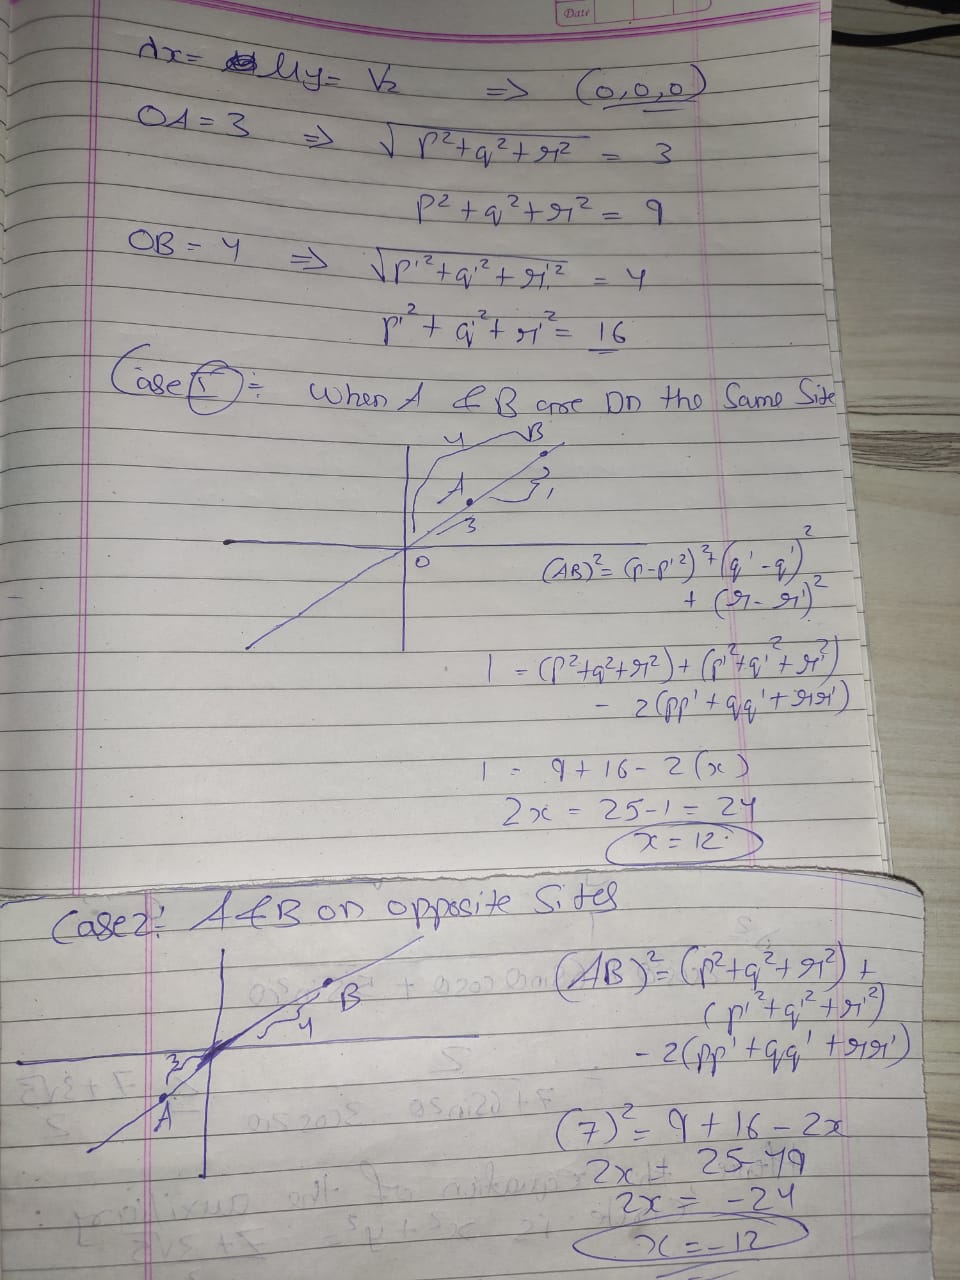 Date
λx = μy = νz ⇒ (0,0,0)
OA = 3 ⇒ √(p²+q²+r²) = 3
p²+q²+r² = 9
OB = 4 ⇒ √(p'²+q'²+r'²) = 4
p'²+q'²+r'² = 16
Case I := When A & B are on the Same Site
4 B
A 1
3
O
(AB)² = (p-p'²)²+(q'-q')²
+ (r-r')²
1 = (p²+q²+r²)+(p'²+q'²+r'²)
- 2(pp'+qq'+rr')
1 = 9+16-2(x)
2x = 25-1 = 24
x = 12
Case 2: A & B on opposite Sites
(AB)² = (p²+q²+r²) +
(p'²+q'²+r'²)
- 2(pp'+qq'+rr')
B
4
3
A
(7)² = 9+16-2x
2x = 25-49
2x = -24
x = -12